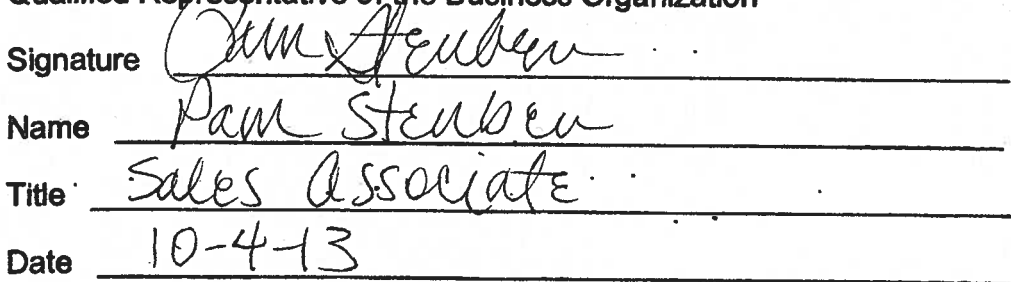 Qualified Representative of the Business Organization
Signature Pam Steuben
Name Pam Steuben
Title Sales Associate
Date 10-4-13